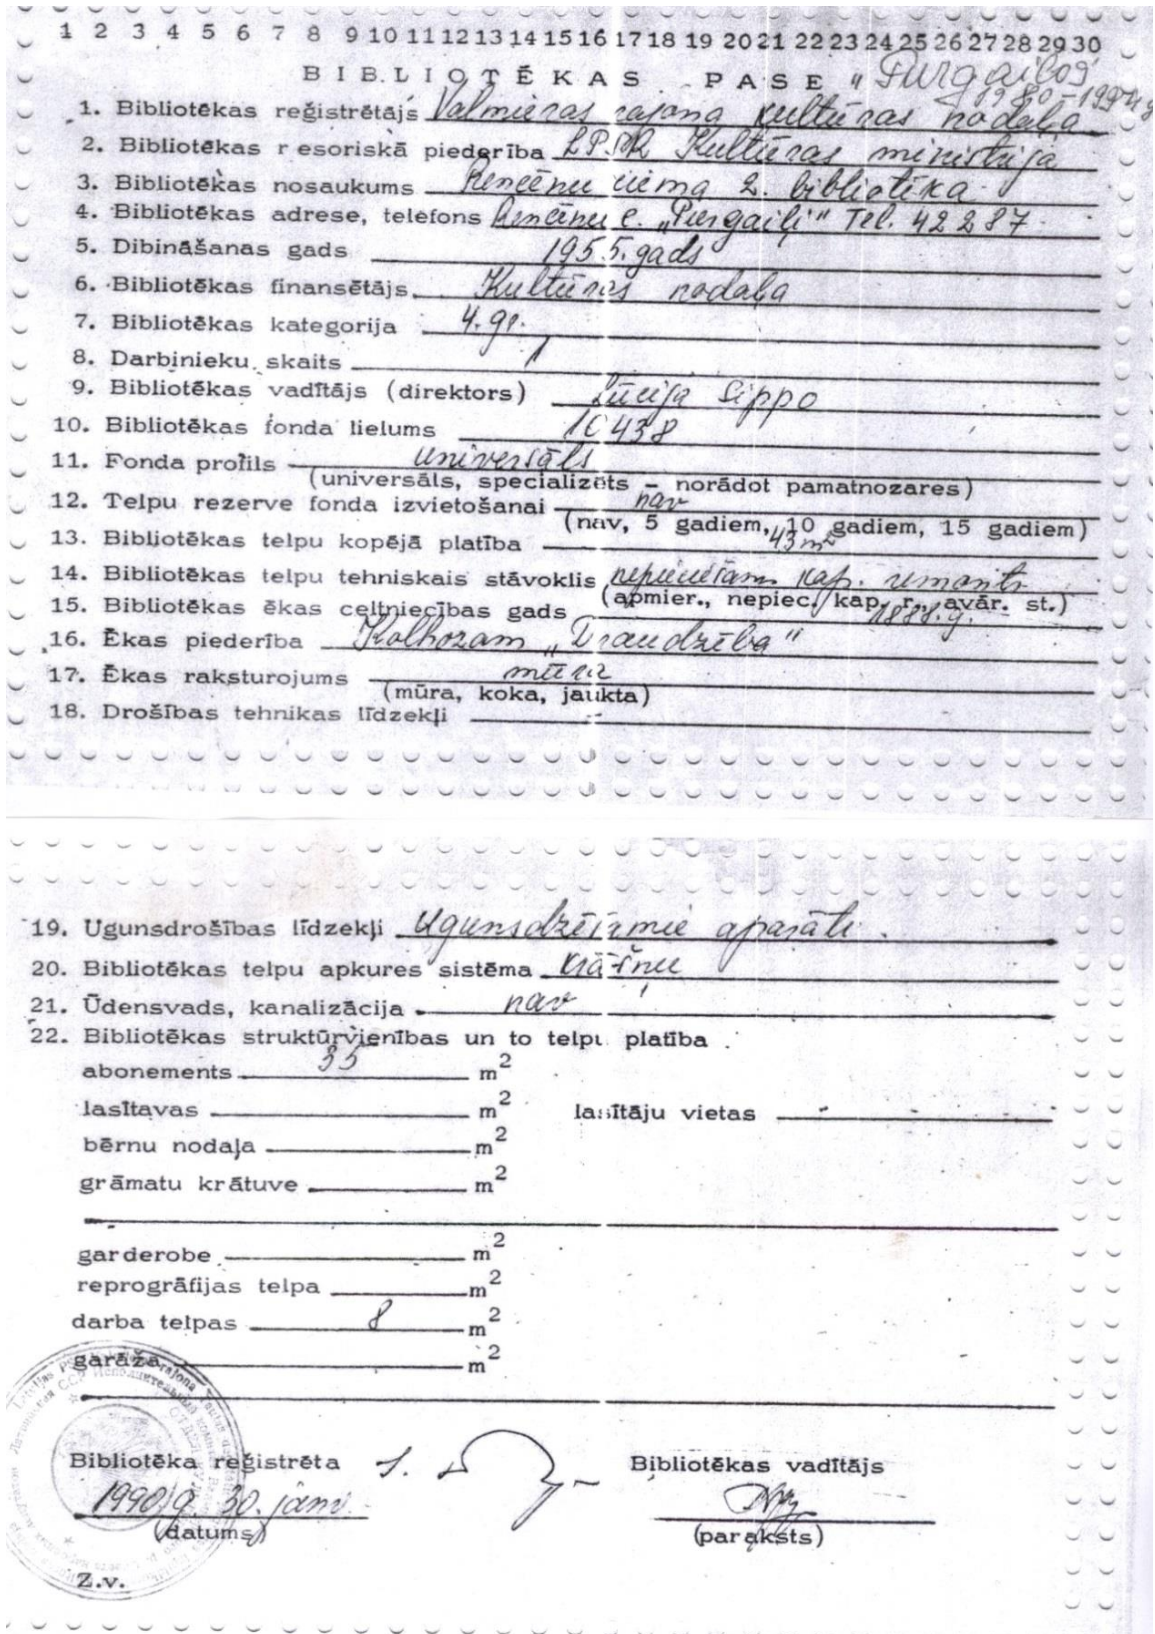 1 2 3 4 5 6 7 8 9 10 11 12 13 14 15 16 17 18 19 20 21 22 23 24 25 26 27 28 29 30
BIBLIOTĒKAS PASE "Purgaiļos"
1980-1994g
1. Bibliotēkas reģistrētājs Valmieras rajona kultūras nodaļa
2. Bibliotēkas resoriskā piederība LPSR Kultūras ministrija
3. Bibliotēkas nosaukums Rencēnu ciema 2. bibliotēka
4. Bibliotēkas adrese, telefons Rencēnu c. "Purgaiļi" Tel. 42287
5. Dibināšanas gads 1955. gads
6. Bibliotēkas finansētājs Kultūras nodaļa
7. Bibliotēkas kategorija 4. gr.
8. Darbinieku skaits 1
9. Bibliotēkas vadītājs (direktors) Lūcija Sippo
10. Bibliotēkas fonda lielums 10438
11. Fonda profils universāls
(universāls, specializēts - norādot pamatnozares)
12. Telpu rezerve fonda izvietošanai nav
(nav, 5 gadiem, 10 gadiem, 15 gadiem)
13. Bibliotēkas telpu kopējā platība 43 m²
14. Bibliotēkas telpu tehniskais stāvoklis nepieciešams kap. remonts
(apmier., nepiec. kap. r., avār. st.)
15. Bibliotēkas ēkas celtniecības gads 1888. g.
16. Ēkas piederība Kolhozam "Draudzība"
17. Ēkas raksturojums mūra
(mūra, koka, jaukta)
18. Drošības tehnikas līdzekļi
19. Ugunsdrošības līdzekļi Ugunsdzēšamie aparāti.
20. Bibliotēkas telpu apkures sistēma krāšņu
21. Ūdensvads, kanalizācija nav
22. Bibliotēkas struktūrvienības un to telpu platība
abonements 35 m²
lasītavas m² lasītāju vietas -
bērnu nodaļa m²
grāmatu krātuve m²
garderobe m²
reprogrāfijas telpa m²
darba telpas 8 m²
garāža m²
Bibliotēka reģistrēta Bibliotēkas vadītājs
1990. g. 30. janv.
(datums) (paraksts)
Z.v.